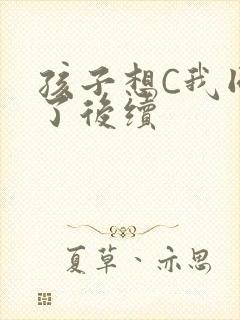 孩子想C我
了後續
夏草、亦思